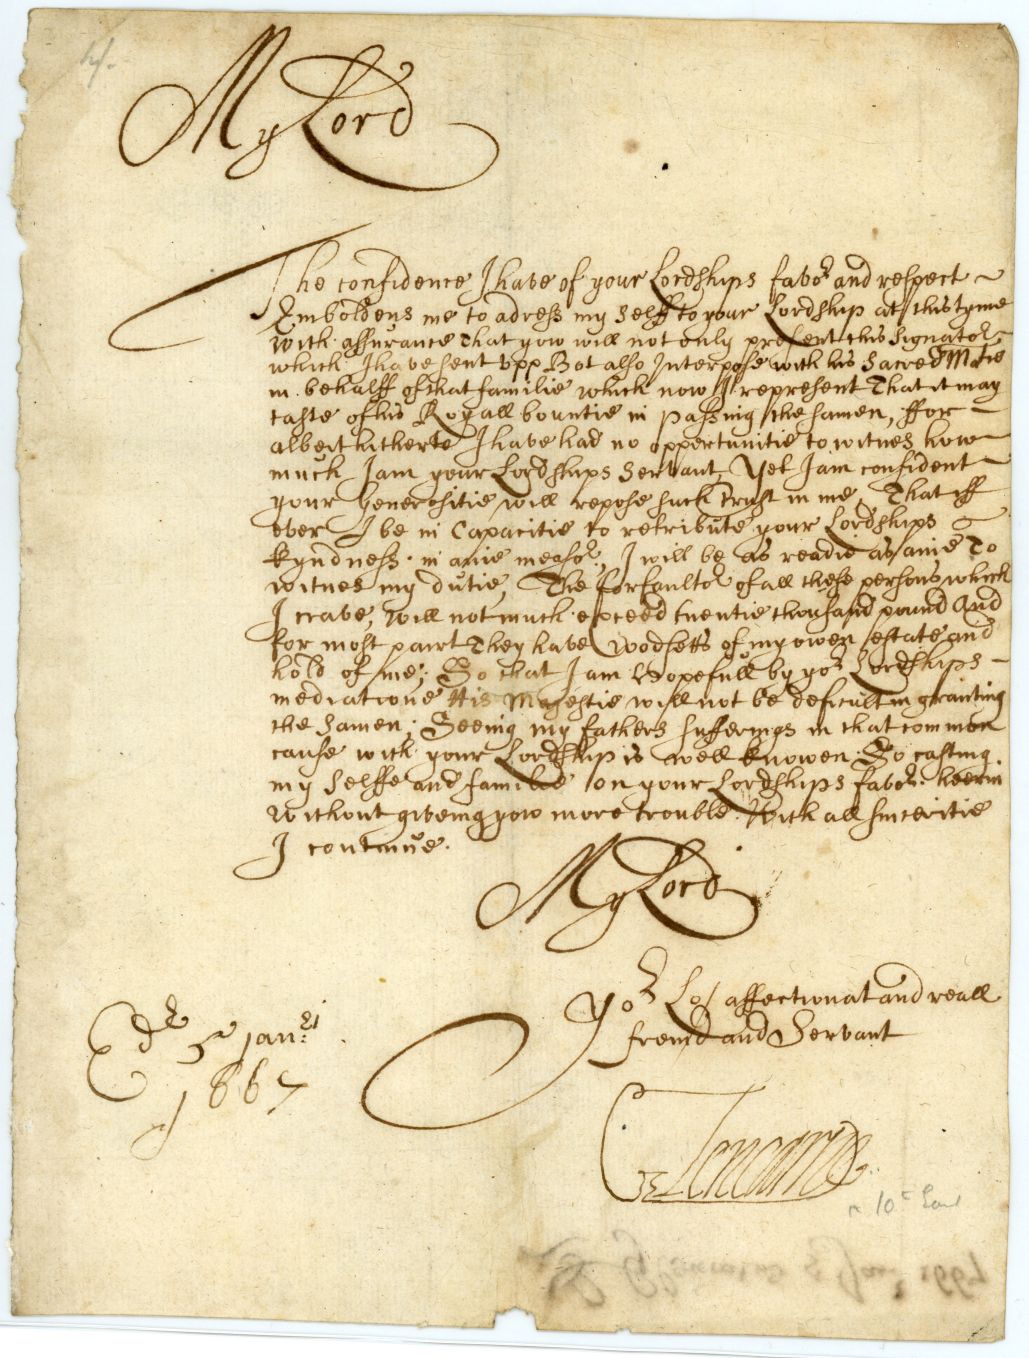 My Lord
The confidence I have of your Lordships favor and respect
Emboldens me to adress my selff to your Lordship at this tyme
With assurance That yow will not only present this Signator
which I have sent vpp Bot also Interpose with his Sacred Matie
in behalff of that familie which now I represent That it may
taste of his Royall bountie in passing the samen, ffor
albeit hitherto I have had no opportunitie to witnes how
much I am your Lordships Servant, Yet I am confident
your Generositie will repose such trust in me, That iff
ever I be in Capacitie to retribute your Lordships
kyndness in anie measor, I will be as readie as anie To
witnes my dutie, The forfaultor of all these persons which
I crave, Will not much exceed tuentie thousand pound And
for most pairt They have Wodsetts of my owen estate and
hold of me; So that I am Hopefull by yor Lordships
mediatione His Majestie will not be deficult in granting
the Samen; Seeing my fathers sufferings in that common
cause with your Lordship is well knowen. So casting
my selffe and familie on your Lordships favor heerin
Without giveing yow more trouble. With all sinceritie
I continue.
My Lord
Yor Lo/ affectionat and reall
freind and Servant
Edr 5 Janri
1667
Glencairne
10